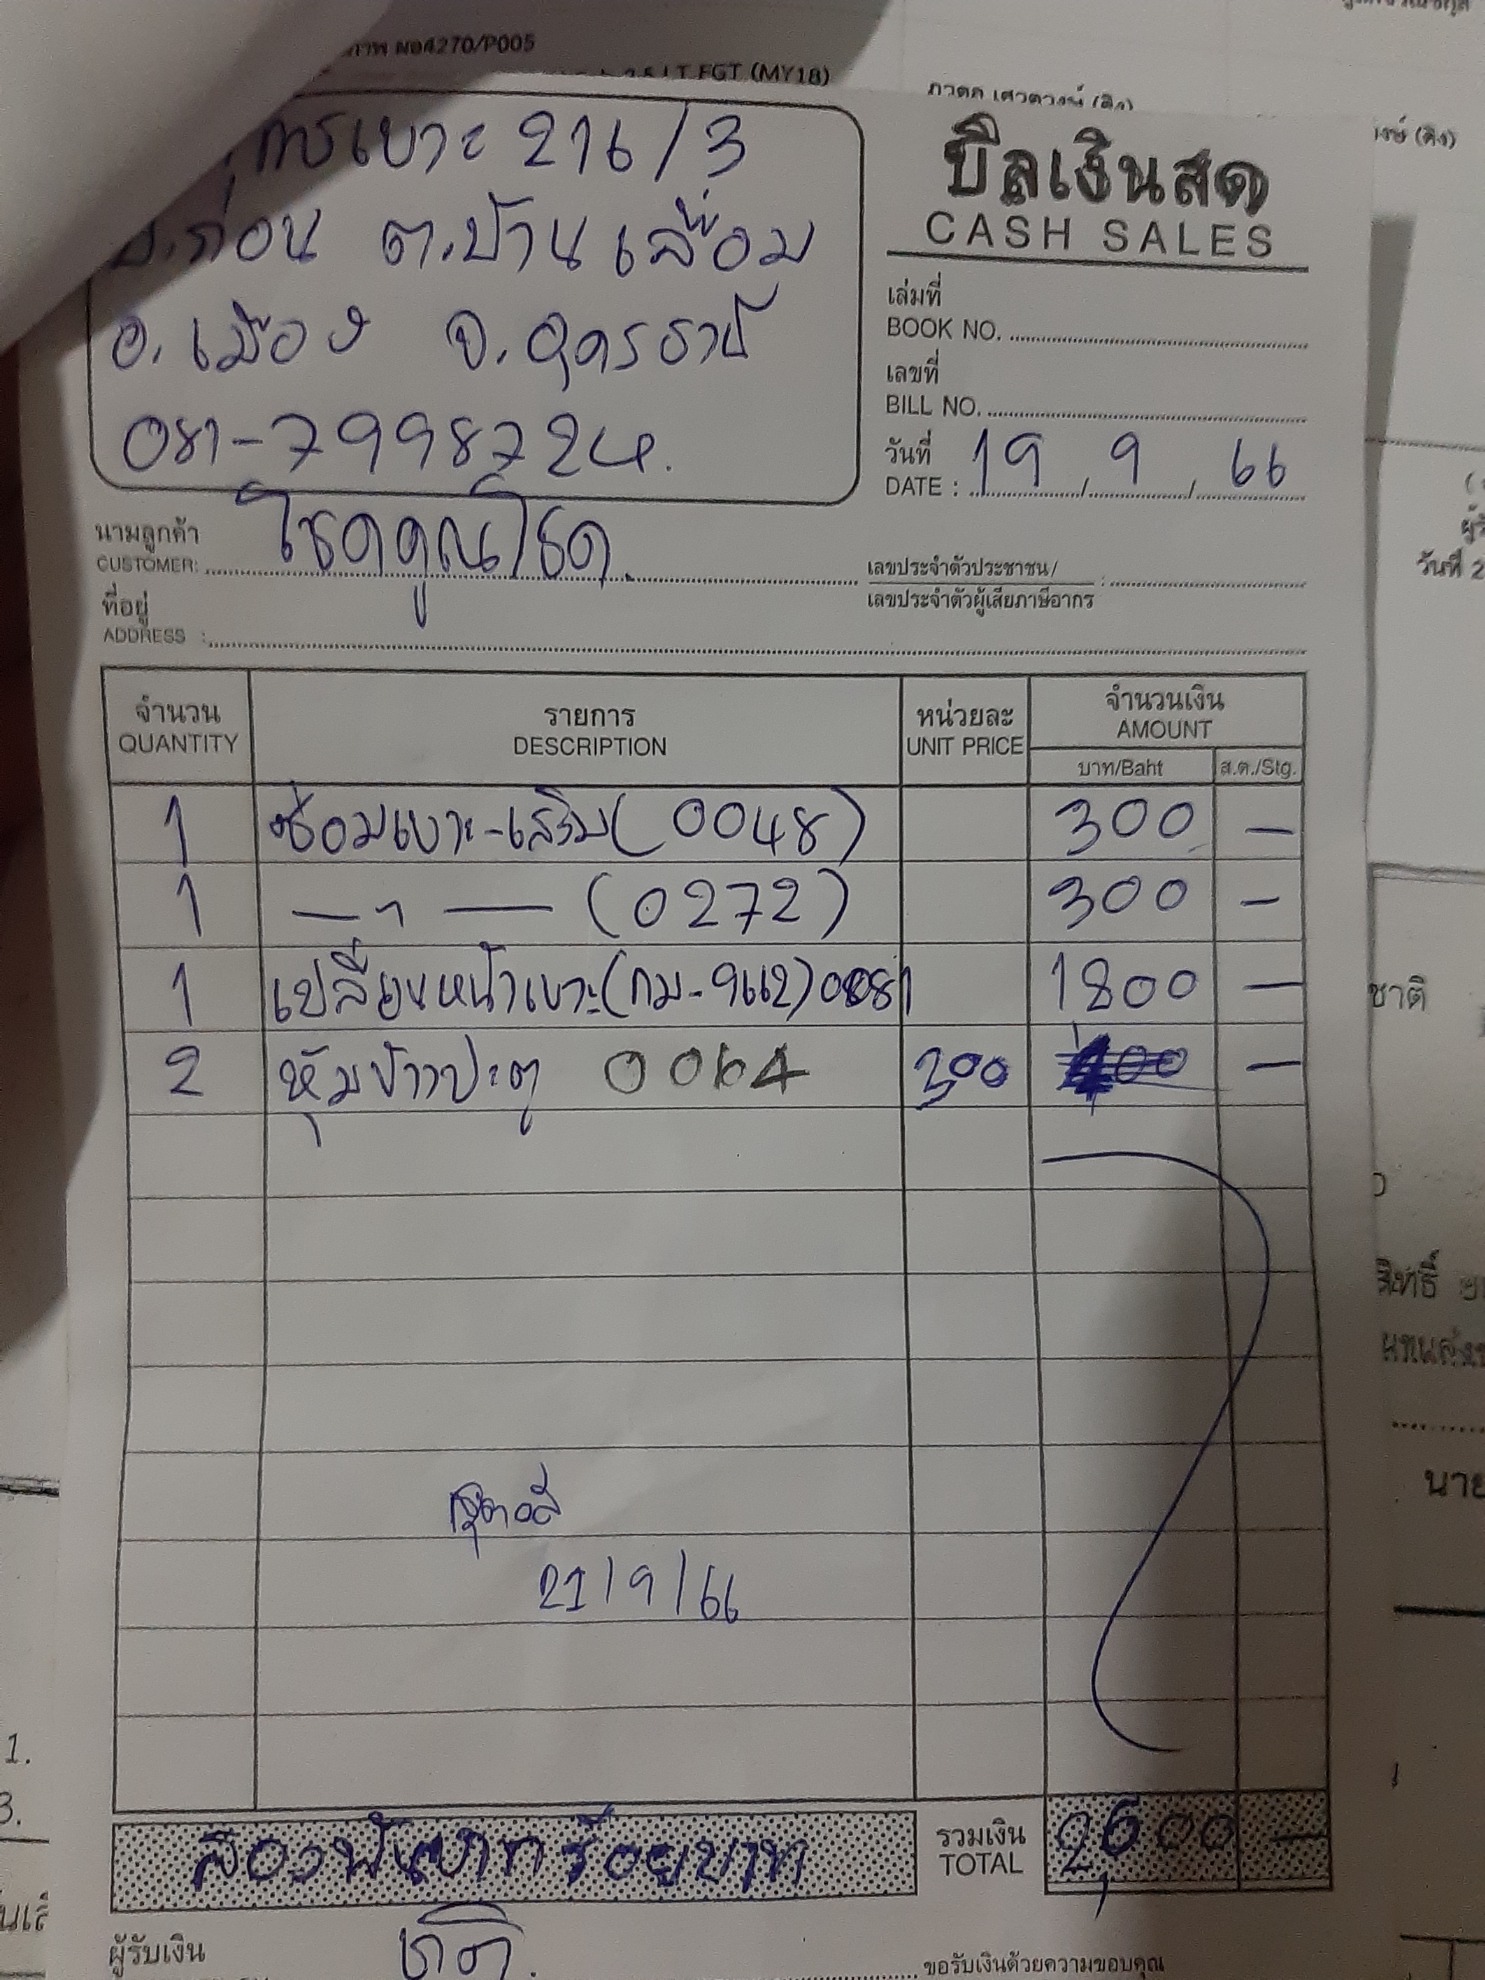 ภาพ ผอ4270/P005
LT FGT (MY18)
การเบาะ 216/3
บ.ก่อน ต.บ้านเลื่อม
อ.เมือง จ.อุดรธานี
081-7998724.
บิลเงินสด
CASH SALES
เล่มที่
BOOK NO.
เลขที่
BILL NO.
วันที่
DATE : 19 / 9 / 66
นามลูกค้า
CUSTOMER: โชคคูณโชค
เลขประจำตัวประชาชน/
เลขประจำตัวผู้เสียภาษีอากร :
ที่อยู่
ADDRESS :
จำนวน รายการ หน่วยละ จำนวนเงิน
QUANTITY DESCRIPTION UNIT PRICE AMOUNT
บาท/Baht ส.ต./Stg.
1 ซ่อมเบาะ-เสริม (0048) 300 —
1 — ។ — (0272) 300 —
1 เปลี่ยนหน้าเบาะ (กม-9662) 0081 1800 —
2 หุ้มข้างประตู 0064 300 —
21/9/66
สองพันหกร้อยบาท
รวมเงิน
TOTAL 2,600 —
ผู้รับเงิน
ขอรับเงินด้วยความขอบคุณ